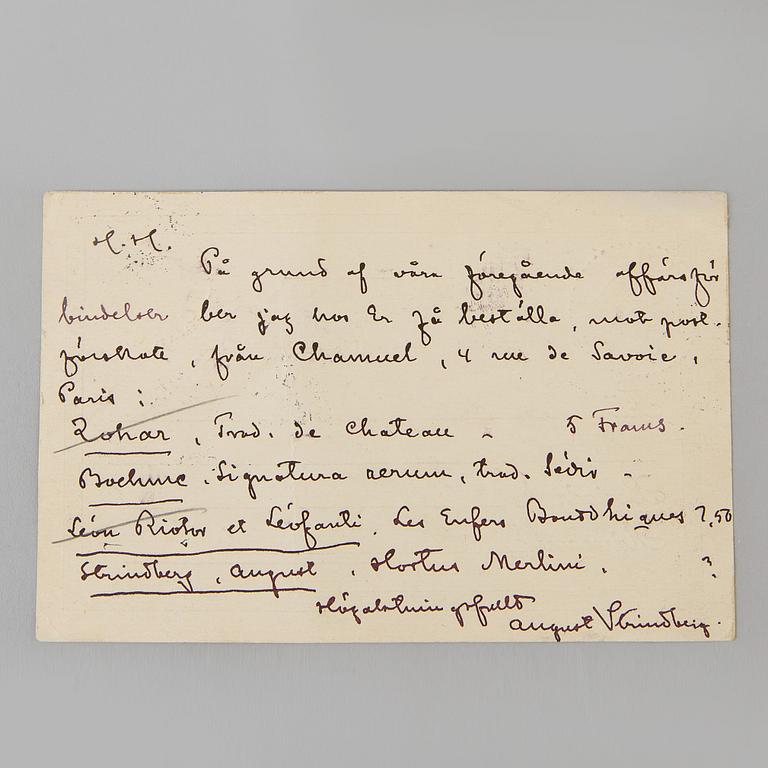 H. H.
På grund af våra föregående affärsför
bindelser ber jag hos Er få beställa, mot post-
förskott, från Chamuel, 4 rue de Savoie,
Paris:
Zohar, Trad. de Chateau - 5 Francs.
Boehme. Signatura rerum, trad. Sédir -
Léon Riotor et Léofanti. Les Enfers Bouddhiques 7,50
Strindberg, August, Hortus Merlini, ?
Högaktningsfullt
August Strindberg.